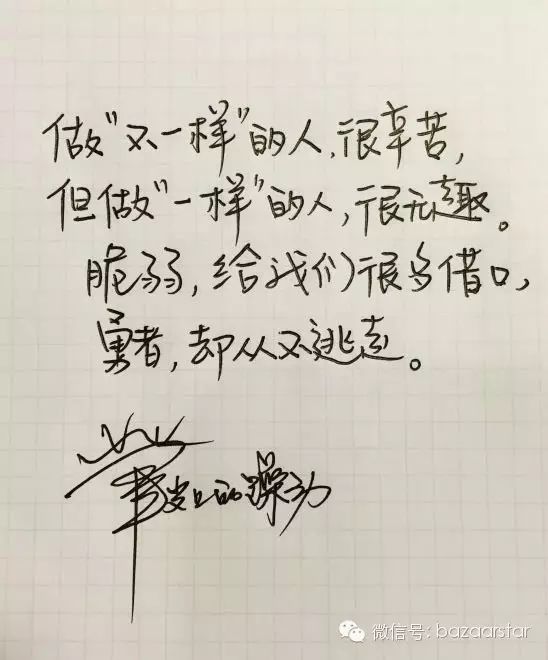 做"不一样"的人,很辛苦,
但做"一样"的人,很无趣。
脆弱,给我们很多借口,
勇者,却从不逃走。
皮上的躁动
微信号: bazaarstar